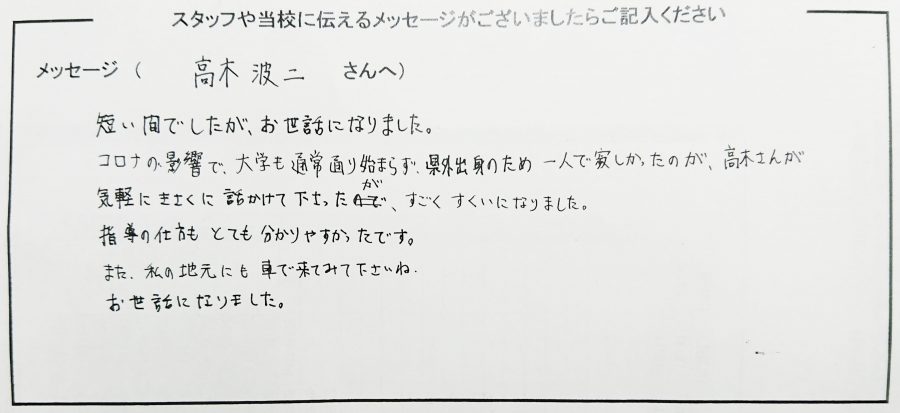 スタッフや当校に伝えるメッセージがございましたらご記入ください
メッセージ ( 高木 波二 さんへ)
短い間でしたが、お世話になりました。
コロナの影響で、大学も通常通り始まらず、県外出身のため 一人で寂しかったのが、高木さんが
気軽にきさくに 話かけて下さったが、すごく すくいになりました。
指導の仕方も とても 分かりやすかったです。
また、私の地元にも 車で来てみて下さいね.
お世話になりました。